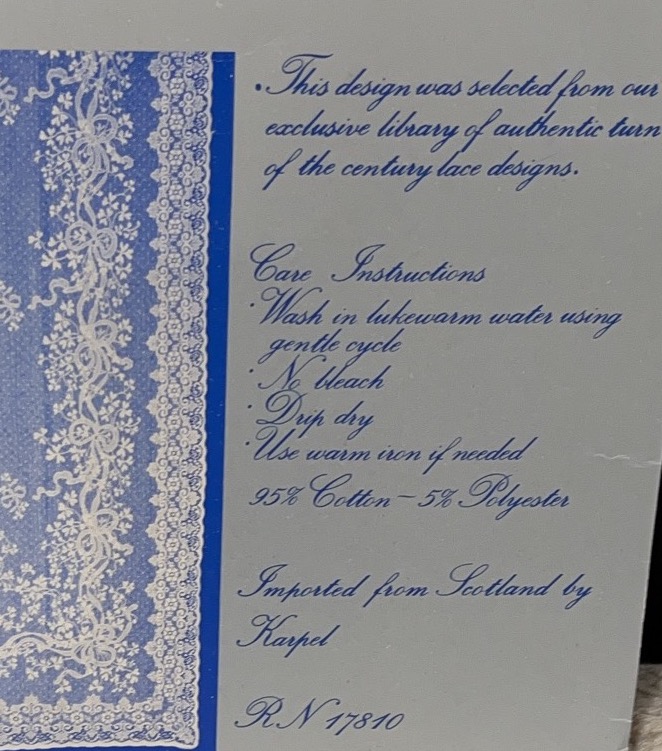 • This design was selected from our
exclusive library of authentic turn
of the century lace designs.
Care Instructions
• Wash in lukewarm water using
gentle cycle
• No bleach
• Drip dry
• Use warm iron if needed
95% Cotton – 5% Polyester
Imported from Scotland by
Karpel
RN 17810